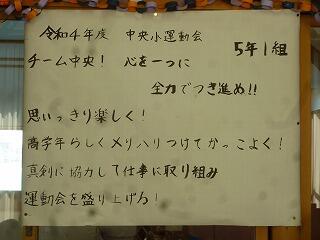 令和4年度　中央小運動会
5年1組
チーム中央！　心を一つに
全力でつき進め!!
思いっきり楽しく！
高学年らしくメリハリつけてかっこよく！
真剣に協力して仕事に取り組み
運動会を盛り上げろ！